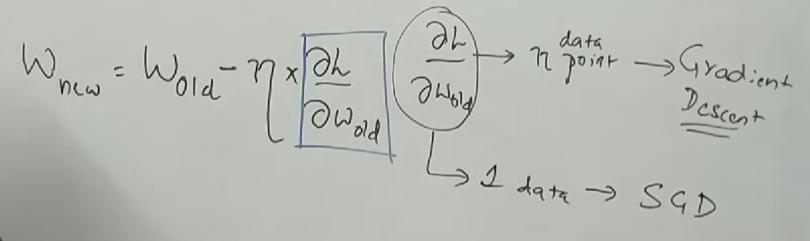 W new = W old - η × ∂L / ∂W old
∂L / ∂W old → n data point → Gradient Descent
→ 1 data → SGD